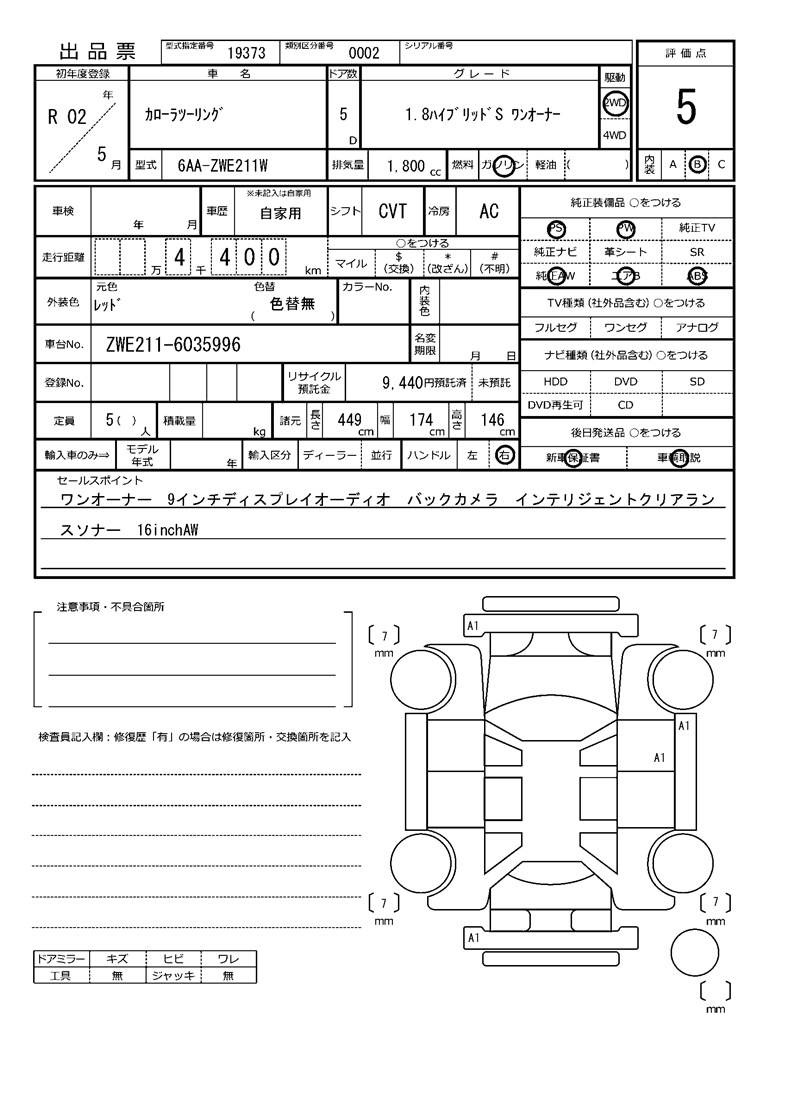 出品票 型式指定番号 19373 類別区分番号 0002 シリアル番号
評価点
初年度登録 車名 ドア数 グレード 駆動
R 02 年 5 月 カローラツーリング 5 D 1.8ハイブリッドS ワンオーナー 2WD 4WD
5
型式 6AA-ZWE211W 排気量 1,800 cc 燃料 ガソリン 軽油 ( )
内装 A B C
車検 年 月 車歴 ※未記入は自家用 自家用 シフト CVT 冷房 AC
走行距離 万 4 千 4 0 0 km ○をつける
マイル $(交換) *(改ざん) #(不明)
外装色 元色 レッド 色替 ( 色替無 ) カラーNo. 内装色
車台No. ZWE211-6035996 名変期限 月 日
登録No. リサイクル預託金 9,440円預託済 未預託
定員 5( ) 人 積載量 kg 諸元 長さ 449 cm 幅 174 cm 高さ 146 cm
輸入車のみ⇒ モデル年式 年 輸入区分 ディーラー 並行 ハンドル 左 右
純正装備品 ○をつける
PS PW 純正TV
純正ナビ 革シート SR
純正AW エアB ABS
TV種類 (社外品含む) ○をつける
フルセグ ワンセグ アナログ
ナビ種類 (社外品含む) ○をつける
HDD DVD SD
DVD再生可 CD
後日発送品 ○をつける
新車保証書 車輌取説
セールスポイント
ワンオーナー 9インチディスプレイオーディオ バックカメラ インテリジェントクリアラン
スソナー 16inchAW
注意事項・不具合箇所
検査員記入欄：修復歴「有」の場合は修復箇所・交換箇所を記入
ドアミラー キズ ヒビ ワレ
工具 無 ジャッキ 無
A1
7 mm
7 mm
A1
A1
7 mm
7 mm
A1
mm